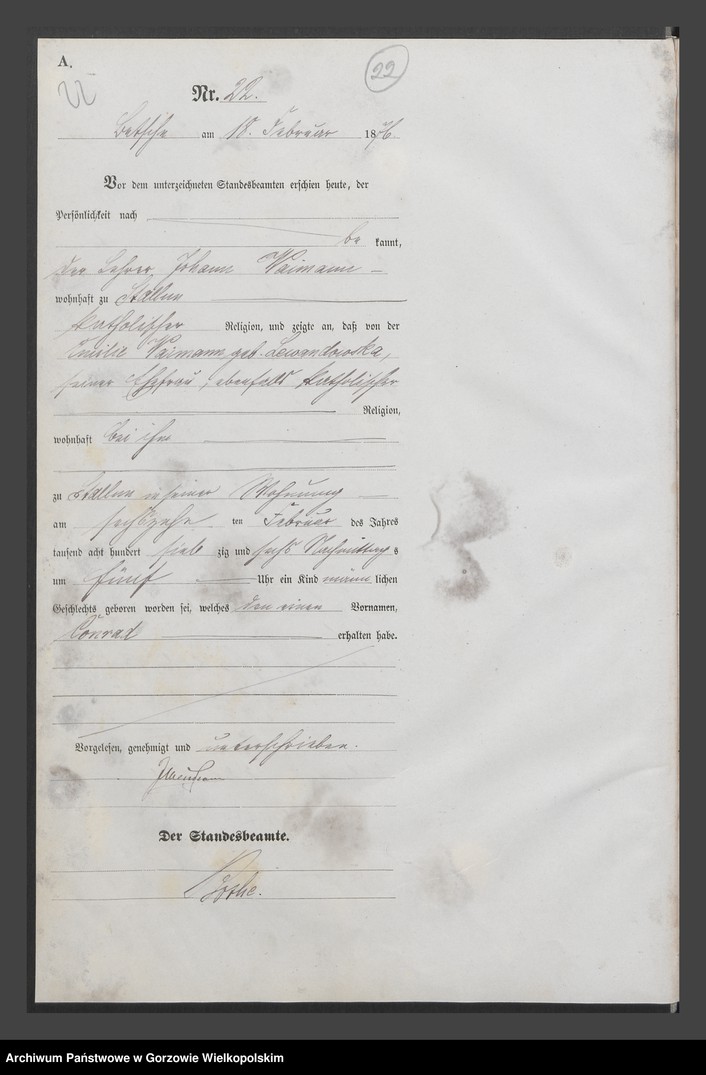 A.
22
22
Nr. 22.
Betsche am 18. Februar 1876.
Vor dem unterzeichneten Standesbeamten erschien heute, der
Persönlichkeit nach
be kannt,
der Lehrer Johann Naimann
wohnhaft zu Stallun
katholischer Religion, und zeigte an, daß von der
Emilie Naimann geb. Lewandowska,
seiner Ehefrau, ebenfalls katholischer
Religion,
wohnhaft bei ihm
zu Stallun in seiner Wohnung
am sechszehn ten Februar des Jahres
tausend acht hundert sieb zig und sechs Nachmittag s
um fünf Uhr ein Kind männ lichen
Geschlechts geboren worden sei, welches den einen Vornamen,
Conrad erhalten habe.
Vorgelesen, genehmigt und unterschrieben.
Der Standesbeamte.
Archiwum Państwowe w Gorzowie Wielkopolskim